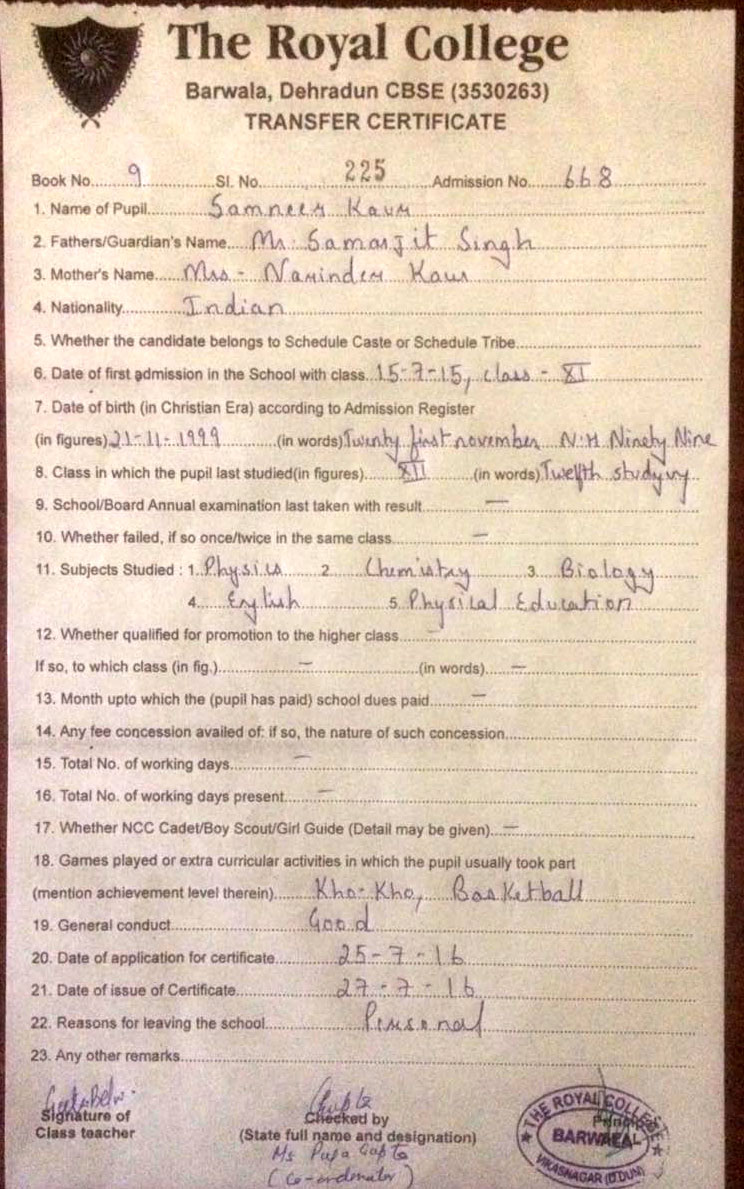 The Royal College
Barwala, Dehradun CBSE (3530263)
TRANSFER CERTIFICATE
Book No. 9 Sl. No. 225 Admission No. 668
1. Name of Pupil Samneer Kaur
2. Fathers/Guardian's Name Mr. Samarjit Singh
3. Mother's Name Mrs - Narinder Kaur
4. Nationality Indian
5. Whether the candidate belongs to Schedule Caste or Schedule Tribe
6. Date of first admission in the School with class 15-7-15, class - XI
7. Date of birth (in Christian Era) according to Admission Register
(in figures) 21-11-1999 (in words) Twenty first november N.H Ninety Nine
8. Class in which the pupil last studied(in figures) XII (in words) Twelfth studyng
9. School/Board Annual examination last taken with result —
10. Whether failed, if so once/twice in the same class —
11. Subjects Studied : 1. Physics 2. Chemistry 3. Biology
4. English 5. Physical Education
12. Whether qualified for promotion to the higher class —
If so, to which class (in fig.) — (in words) —
13. Month upto which the (pupil has paid) school dues paid —
14. Any fee concession availed of: if so, the nature of such concession
15. Total No. of working days —
16. Total No. of working days present —
17. Whether NCC Cadet/Boy Scout/Girl Guide (Detail may be given) —
18. Games played or extra curricular activities in which the pupil usually took part
(mention achievement level therein) Kho-Kho, Basketball
19. General conduct Good
20. Date of application for certificate 25-7-16
21. Date of issue of Certificate 27-7-16
22. Reasons for leaving the school Personal
23. Any other remarks
Signature of
Class teacher
Gupta
Checked by
(State full name and designation)
Ms Puja Gupta
(Co-ordenator)
THE ROYAL COLLEGE
BARWALA
VIKASNAGAR (D.DUN)